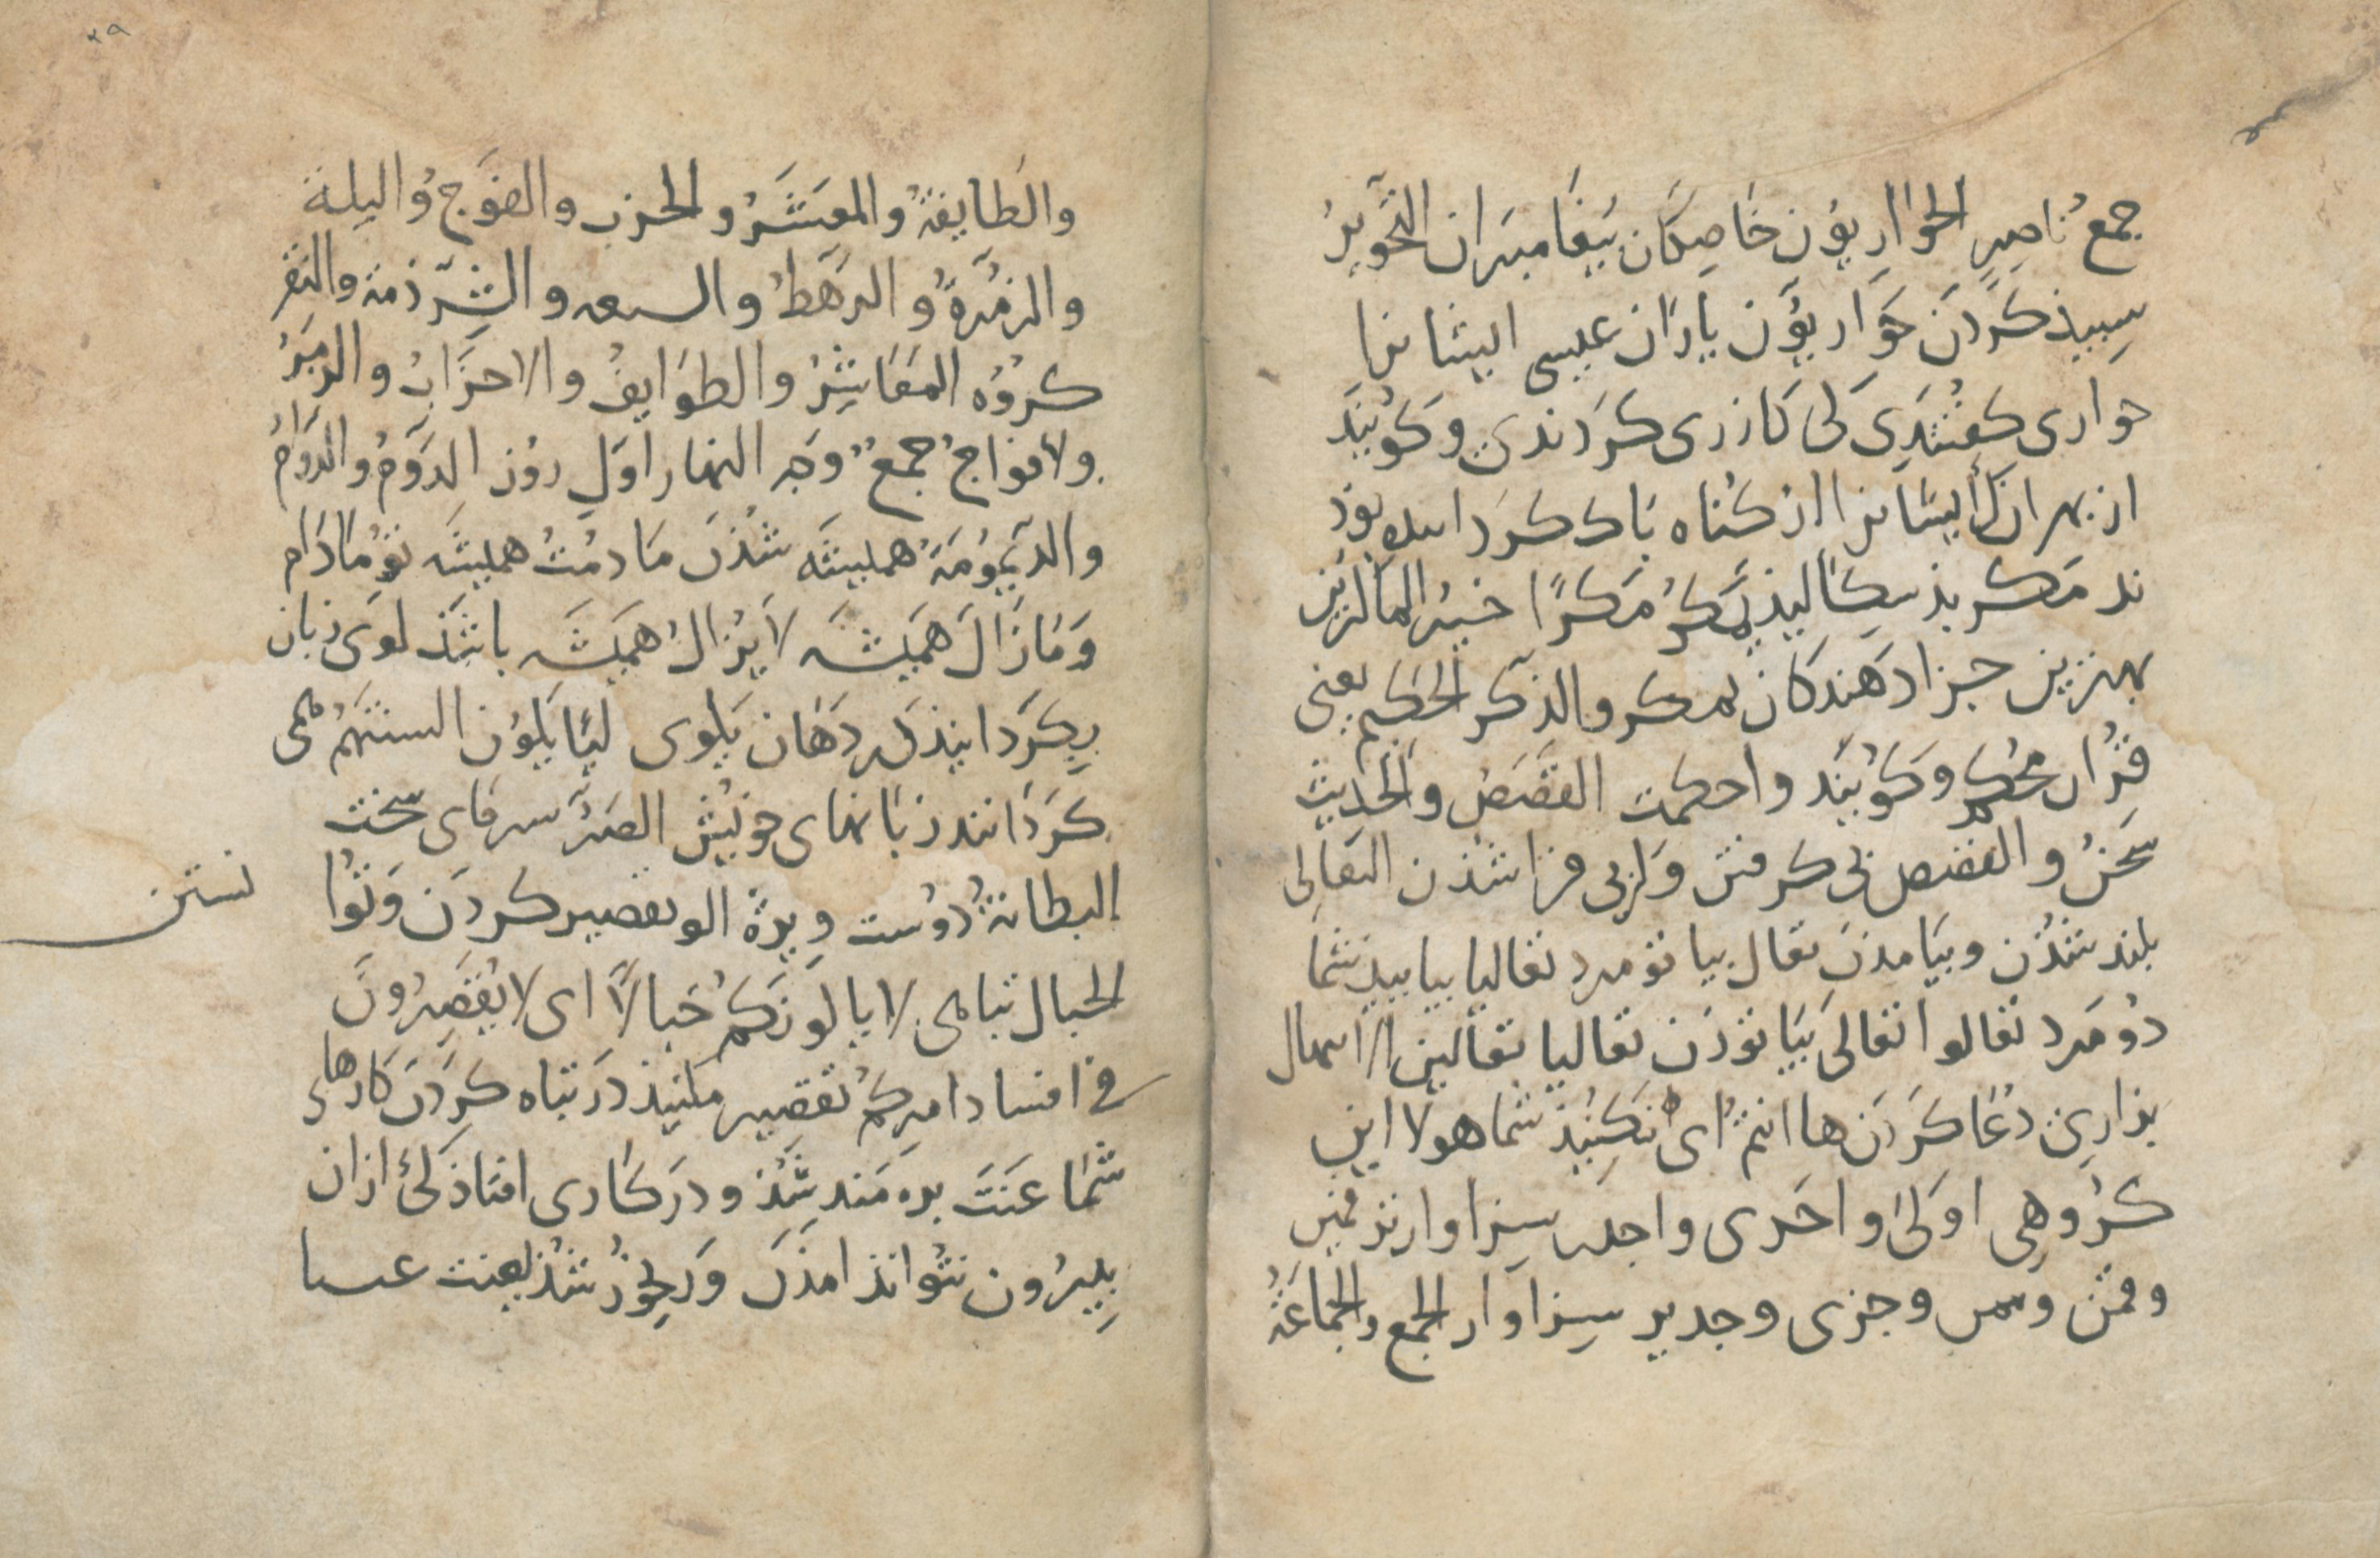 جمعُ ناصِرٍ الحَوَاریوُن خَاصِکَان بَیغَامبَران التَّحْوِیرُ
سِبیذ کَردَن حَوَاریوُن یَارَان عیسی ایشانرا
حواری کفتندَی کی کَازری کَردندی وکویَند
از بهر انک ایشانرا از کُناه بَاک کَرد بوذ
ند مَکر بذ سِکالیذن یمَکرُ مَکرًا خیرُ الماکرین
بهترین جزا دَهندکان بمکر والذِّکر الحَکِیم یعنی
قُرُان محکم وکویَند واحکمت القَصَصُ والحَدِیثُ
سَخنُ والقصص بی کرفتن وازبی فراشذن التعَالی
بلند شُذن وبیَامذن تعَال بیا تو مرد تعالیا بیایید شما
دُو مَرد تعَالوا تعَالی بیَا تو زَن تعَالیا تعَالین الابتهال
بزاری دُعَا کَردَن ها انتم ای نکنیذ شما هولا این
کرُوهی اولی واحَری واجدر سِزاوارتر قمین
وقمَن وجزی وجدیر سِزاوار الجمع والجمَاعَةُ
۲۹
والطَایِفَةُ والمعشَرُ والحزب والفَوج
والزُمرَةُ والرَهطُ والشِرذمة والنفر
کرُوُه المعَاشِرُ والطوَایفُ والاحزَابُ والزُمَرُ
والافواجُ جمعٌ وَجه النهار اوَّلِ روُز الدَوَمُ والدَّوَامُ
والدَیموُمَةُ همیشَه شُذَن مَا دمُتُ همیشَه تو مَادَام
وَمَازَالَ هَمیشَه لایَزالُ هَمیشَه باشَذ لَوَی زبان
بکَردانیذ در دَهَان یَلوی لیًّا یَلوُن السنتَهُم همی
کَردَانند زبانهای خویش الصِرّ سرمای سخت
البطانَةُ دوُست ویژه الو تقصیر کردَن وتوُا
نستن
الخبال تباهی لا یالونَکُم خَبالًا ای لا یُقَصِّرُونَ
فی افساد امرکُم تقصیر مکنیذ در تباه کَردَن کارهای
شَما عَنَتَ بزه مَند شُذ ودَر کَاری افتاذ کی ازان
بِیرون نتُوانذ امذَن ورَنجوُر شُذ یعنت